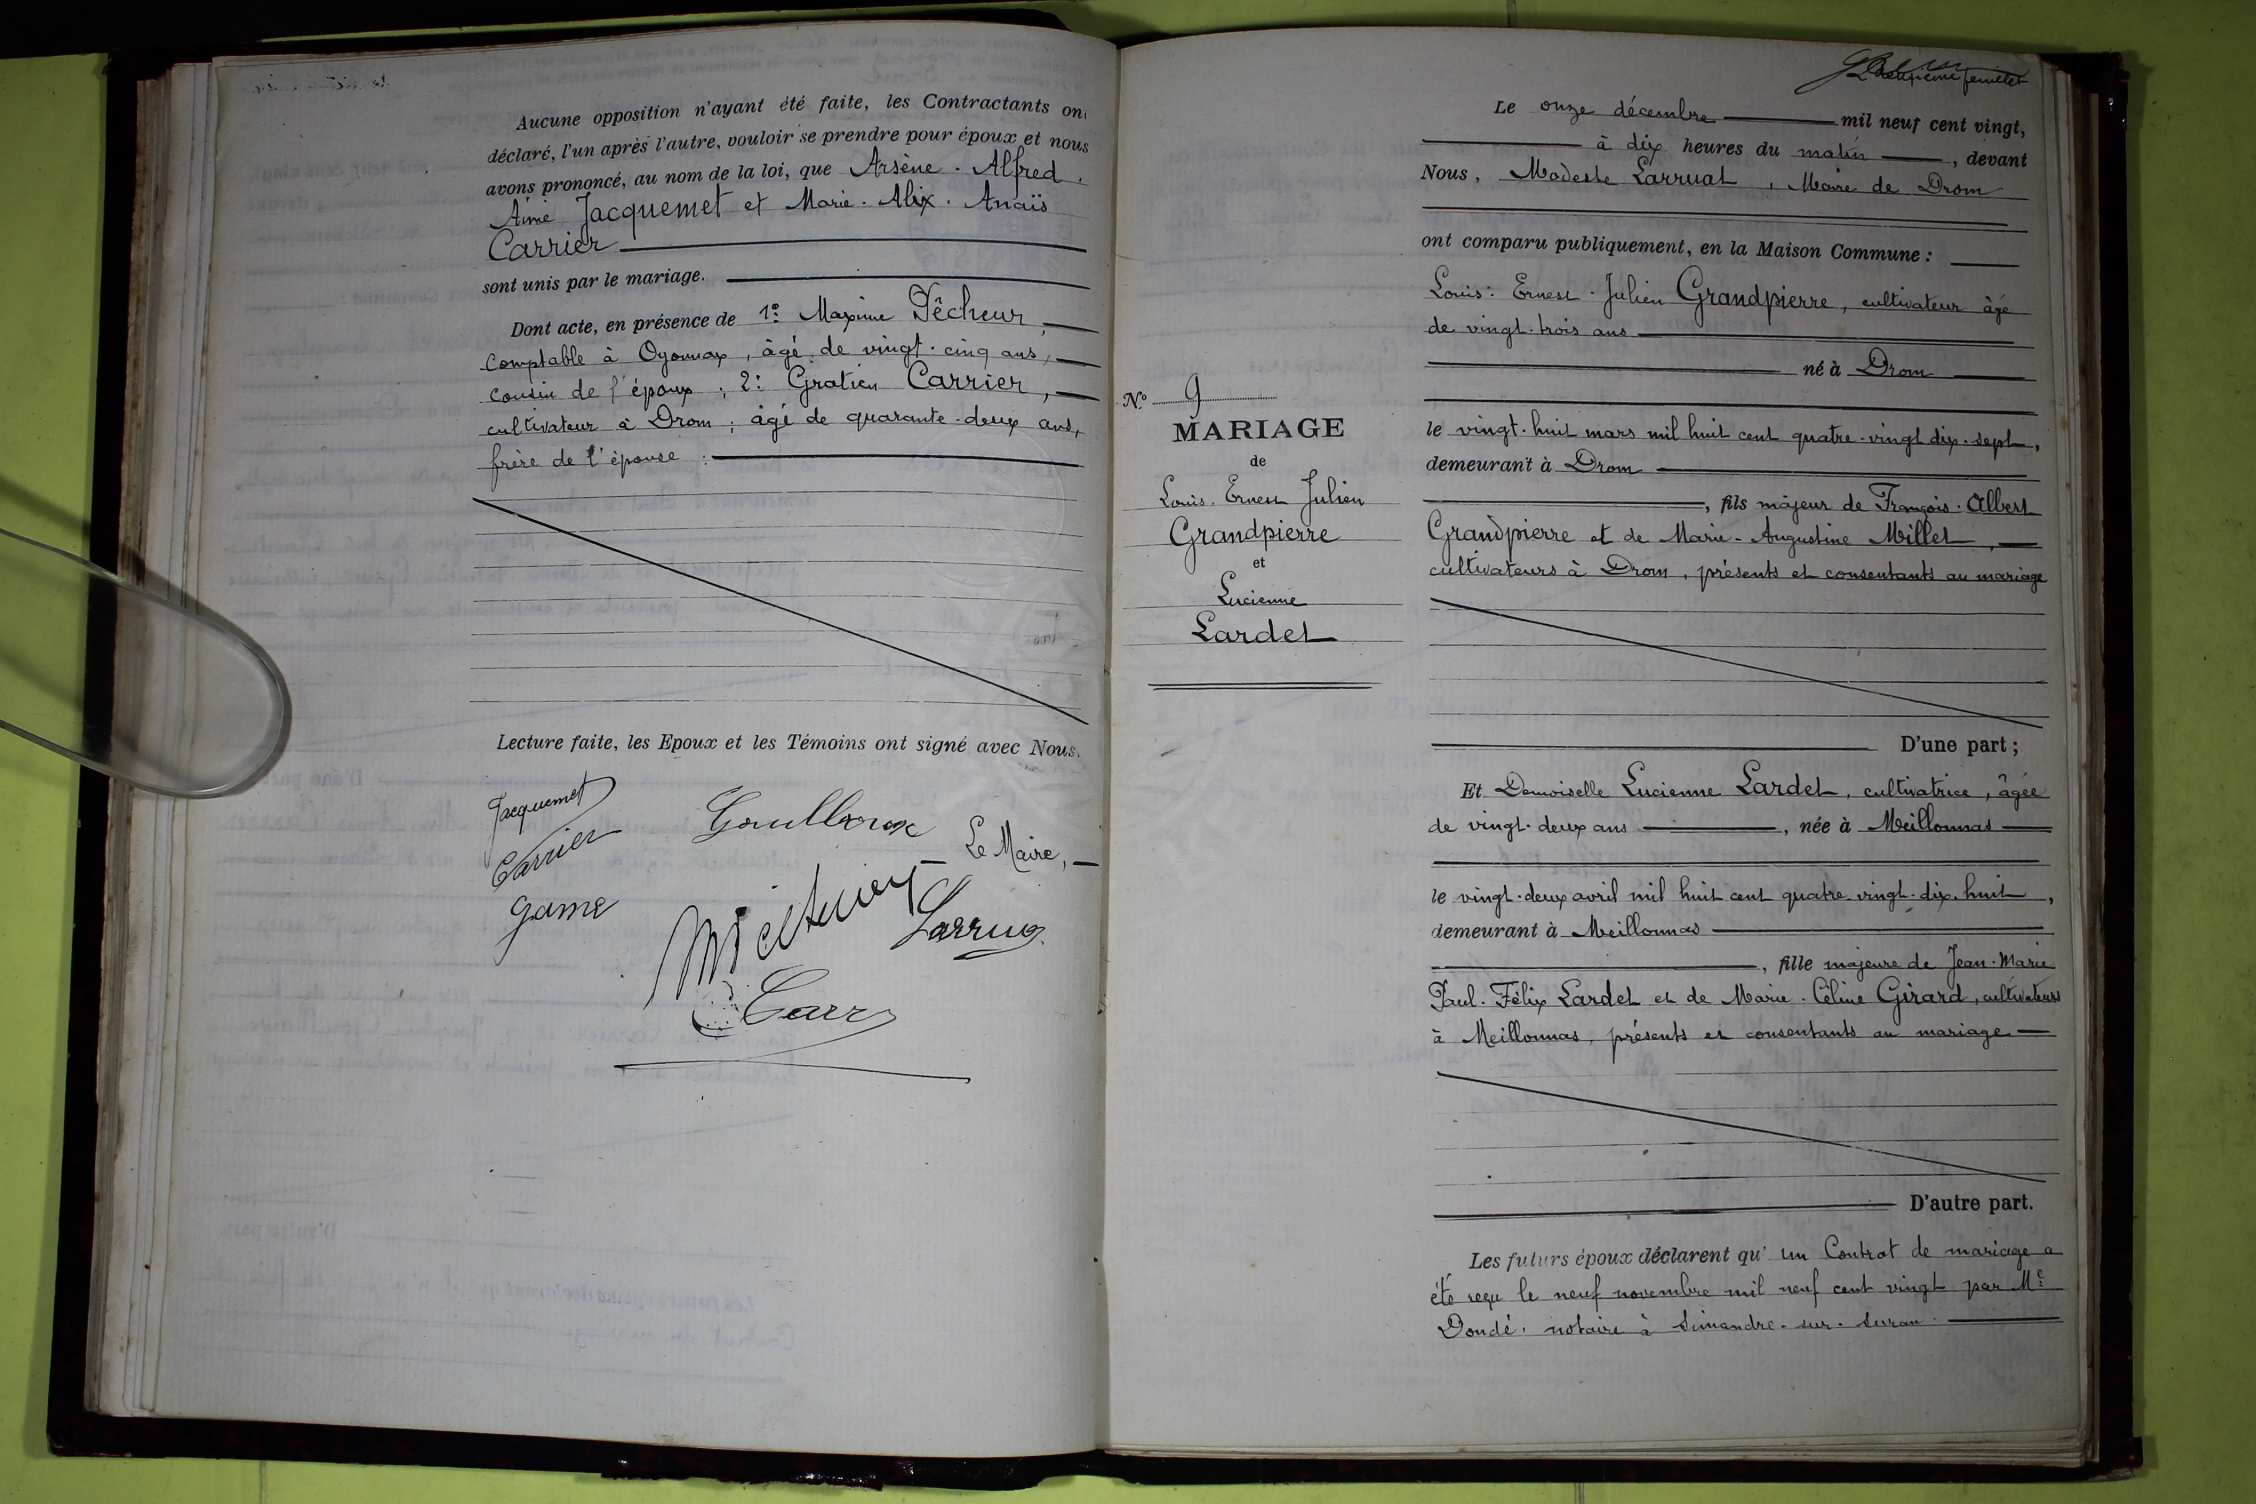 Aucune opposition n'ayant été faite, les Contractants ont
déclaré, l'un après l'autre, vouloir se prendre pour époux et nous
avons prononcé, au nom de la loi, que Arsène. Alfred.
Aimé Jacquemet et Marie. Alix. Anaïs
Carrier
sont unis par le mariage.
Dont acte, en présence de 1º: Maxime Pêcheur,
comptable à Oyonnax, âgé de vingt-cinq ans,
cousin de l'époux; 2º: Gratien Carrier,
cultivateur à Drom; âgé de quarante-deux ans,
frère de l'épouse:
Lecture faite, les Epoux et les Témoins ont signé avec Nous.
Jacquemet
Carrier
Game
Le Maire,
Larrua
Carr
deuxième feuillet
Le onze décembre mil neuf cent vingt,
à dix heures du matin, devant
Nous, Modeste Larruat, Maire de Drom
ont comparu publiquement, en la Maison Commune:
Louis. Ernest. Julien Grandpierre, cultivateur âgé
de vingt-trois ans
né à Drom
le vingt-huit mars mil huit cent quatre-vingt dix-sept,
demeurant à Drom
, fils majeur de François. Albert
Grandpierre et de Marie-Augustine Millet,
cultivateurs à Drom, présents et consentants au mariage
D'une part;
Et Demoiselle Lucienne Lardet, cultivatrice, âgée
de vingt-deux ans, née à Meillonnas
le vingt-deux avril mil huit cent quatre-vingt-dix-huit,
demeurant à Meillonnas
, fille majeure de Jean-Marie
Paul. Félix Lardet et de Marie. Céline Girard, cultivateurs
à Meillonnas, présents et consentants au mariage
D'autre part.
Les futurs époux déclarent qu'un Contrat de mariage a
été reçu le neuf novembre mil neuf cent vingt par Me
Dondé, notaire à Simandre-sur-Suran.
Nº 9
MARIAGE
de
Louis. Ernest Julien
Grandpierre
et
Lucienne
Lardet